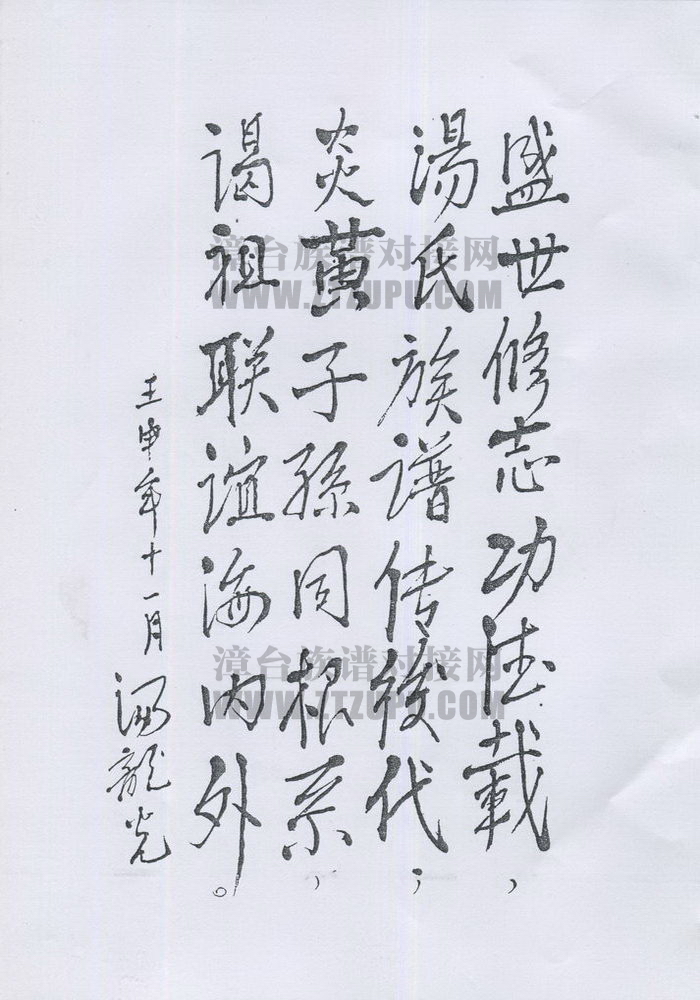 盛世修志功德載，
湯氏族谱传後代；
炎黄子孫同根系，
谒祖联谊海内外。
壬申年十一月
湯龍光
漳台族谱对接网
WWW.ZTZUPU.COM
漳台族谱对接网
WWW.ZTZUPU.COM